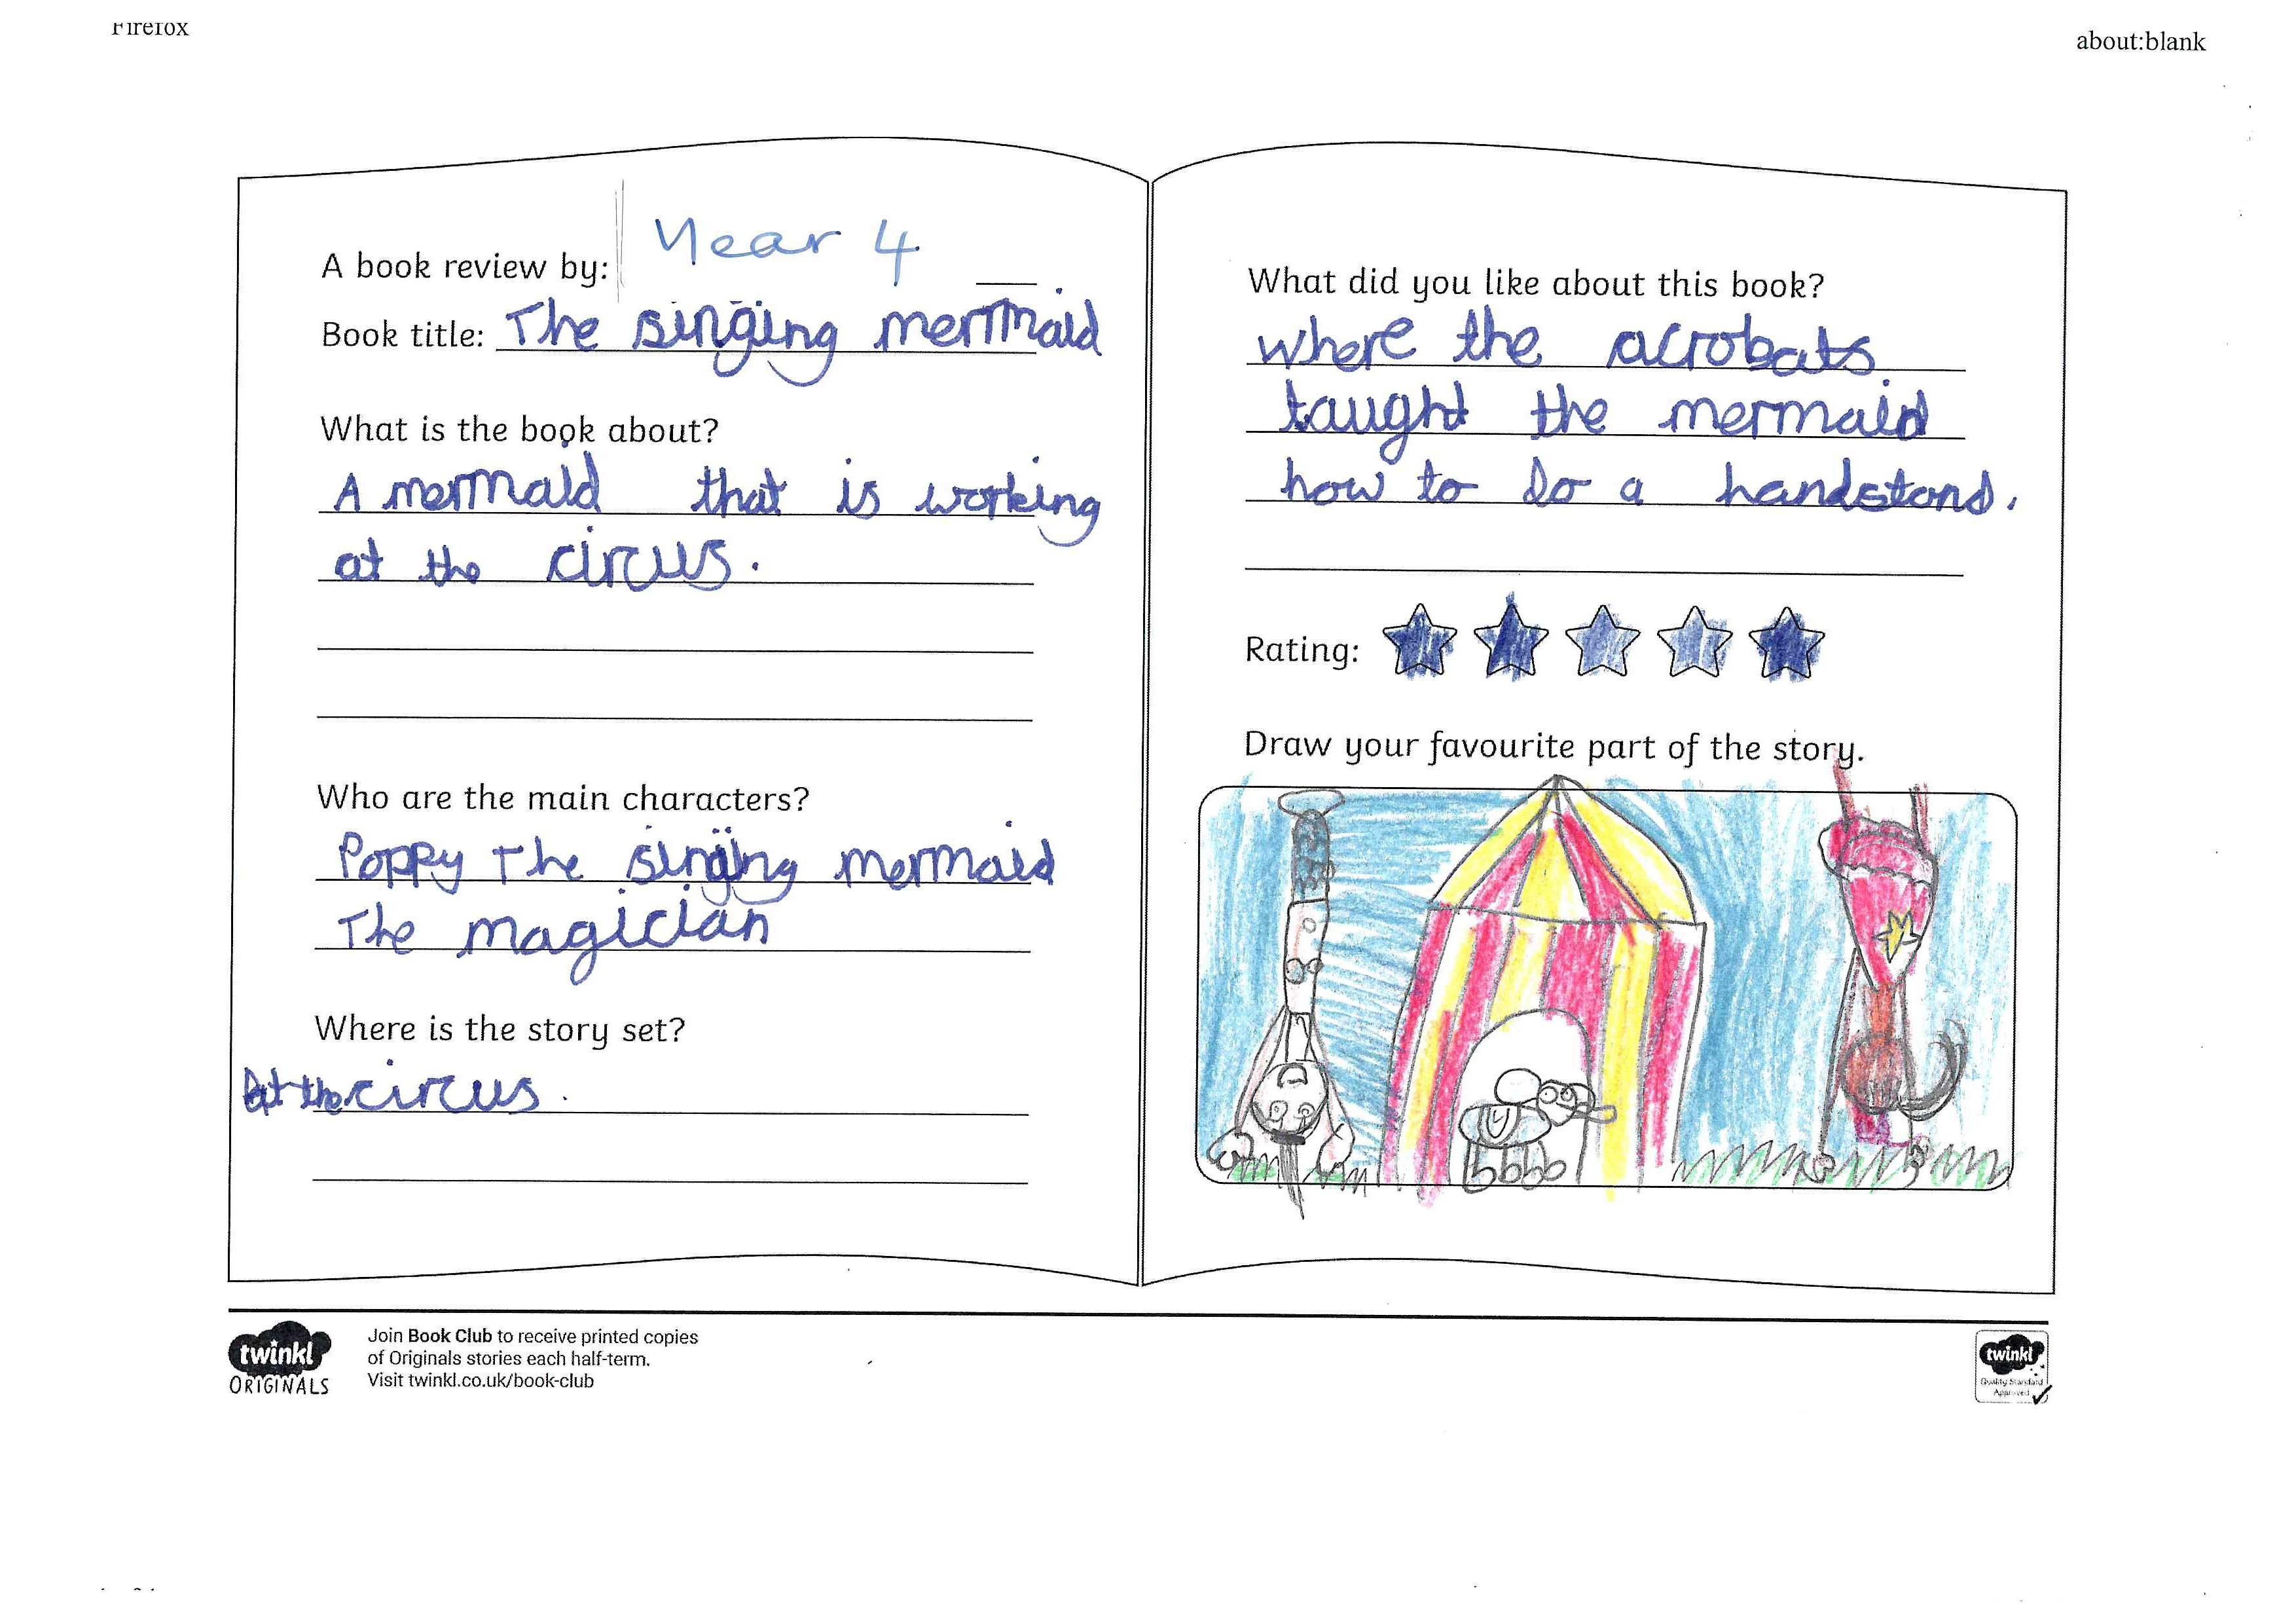 Firefox
about:blank
A book review by: Year 4
Book title: The singing mermaid
What is the book about?
A mermaid that is working
at the circus.
Who are the main characters?
Poppy The singing mermaid
The magician
Where is the story set?
At the circus.
What did you like about this book?
where the acrobats
taught the mermaid
how to do a handstand.
Rating:
Draw your favourite part of the story.
twinkl
ORIGINALS
Join Book Club to receive printed copies
of Originals stories each half-term.
Visit twinkl.co.uk/book-club
twinkl
Quality Standard
Approved